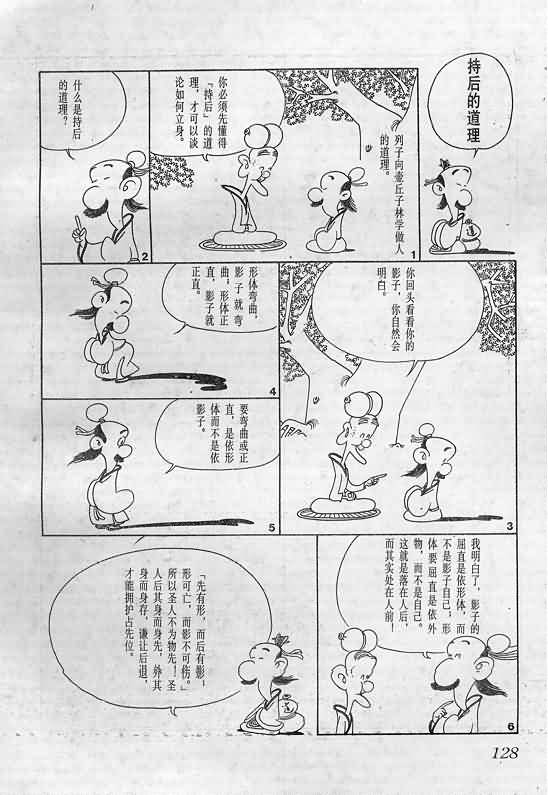 持后的道理
列子向壶丘子林学做人
的道理。
你必须先懂得
『持后』的道
理，才可以谈
论如何立身。
1
什么是持后
的道理？
2
你回头看看你的
影子，你自然会
明白。
3
形体弯曲，
影子就弯
曲；形体正
直，影子就
正直。
4
要弯曲或正
直，是依形
体而不是依
影子。
5
我明白了，影子的
屈直是依形体，而
不是影子自己；形
体要屈直是依外
物，而不是自己。
这就是落在人后，
而其实处在人前！
6
「先有形，而后有影；
形可亡，而影不可伤。」
所以圣人不为物先！圣
人后其身而身先，外其
身而身存，谦让后退，
才能拥护占先位。
128